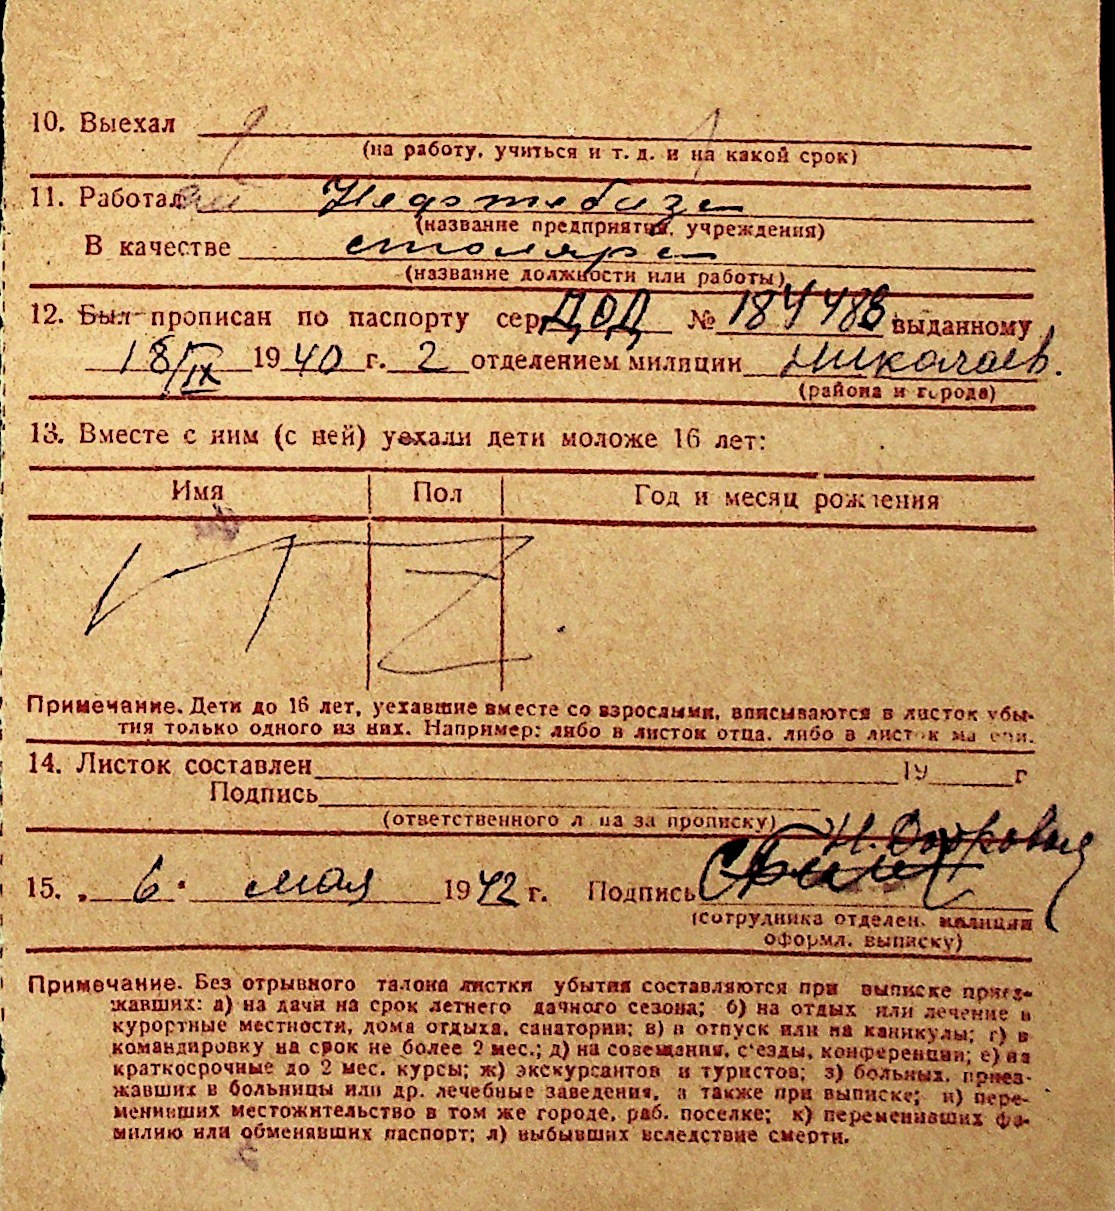 10. Выехал
(на работу, учиться и т. д. и на какой срок)
11. Работал Нефтебаза
(название предприятия, учреждения)
В качестве столяра
(название должности или работы)
12. Был прописан по паспорту сер. ДОД № 184488 выданному
18/IX 1940 г. 2 отделением милиции Николаев.
(района и города)
13. Вместе с ним (с ней) уехали дети моложе 16 лет:
Имя Пол Год и месяц рождения
Примечание. Дети до 16 лет, уехавшие вместе со взрослыми, вписываются в листок убы-
тия только одного из них. Например: либо в листок отца, либо в листок матери.
14. Листок составлен 19 г
Подпись
(ответственного лица за прописку)
15. „ 6 " мая 1942 г. Подпись
(сотрудника отделен. милиции
оформл. выписку)
Примечание. Без отрывного талона листки убытия составляются при выписке приез-
жавших: а) на дачи на срок летнего дачного сезона; б) на отдых или лечение в
курортные местности, дома отдыха, санатории; в) в отпуск или на каникулы; г) в
командировку на срок не более 2 мес.; д) на совещания, с'езды, конференции; е) на
краткосрочные до 2 мес. курсы; ж) экскурсантов и туристов; з) больных, приез-
жавших в больницы или др. лечебные заведения, а также при выписке; и) пере-
менивших местожительство в том же городе, раб. поселке; к) переменивших фа-
милию или обменявших паспорт; л) выбывших вследствие смерти.